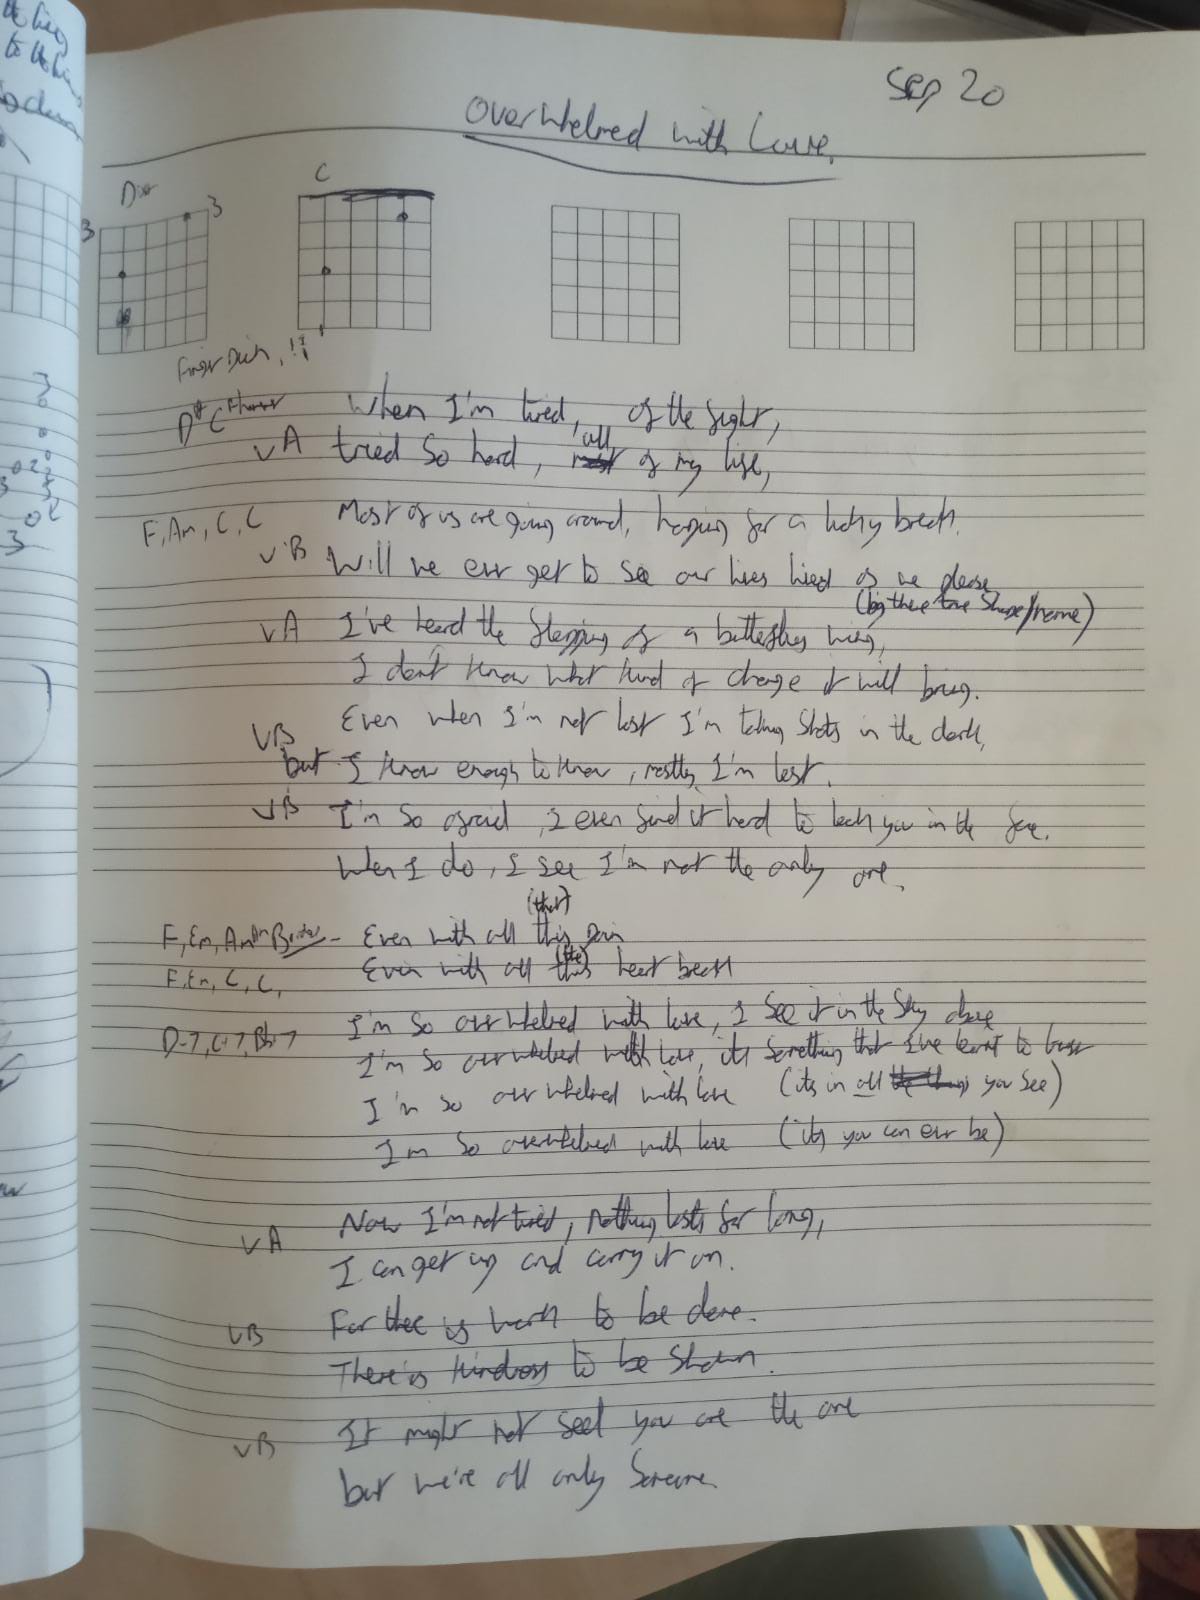 Sep 20
Overwhelmed with Love.
C
3 3
When I'm tired, of the fight,
VA tried so hard, all of my life,
F, Am, C, C Most of us are going around, hoping for a lucky break.
VB Will we ever get to see our lives lived as we please
VA I've heard the flapping of a butterflies wing,
I don't know what kind of change it will bring.
VB Even when I'm not lost I'm taking shots in the dark,
but I know enough to know, mostly I'm lost.
VB I'm so afraid, I even find it hard to look you in the face.
When I do, I see I'm not the only one.
(that)
F, Em, Am - Even with all this pain
(the)
F, Em, C, C, Even with all this heart break
I'm so overwhelmed with love, I see it in the sky above
I'm so overwhelmed with love, its something that I've learnt to trust
I'm so overwhelmed with love (its in all you see)
I'm so overwhelmed with love (its you can ever be)
VA Now I'm not tired, nothing lasts for long,
I can get up and carry it on.
VB For there is work to be done.
There is kindness to be shown.
VB It might not feel you are the one
but we're all only someone.